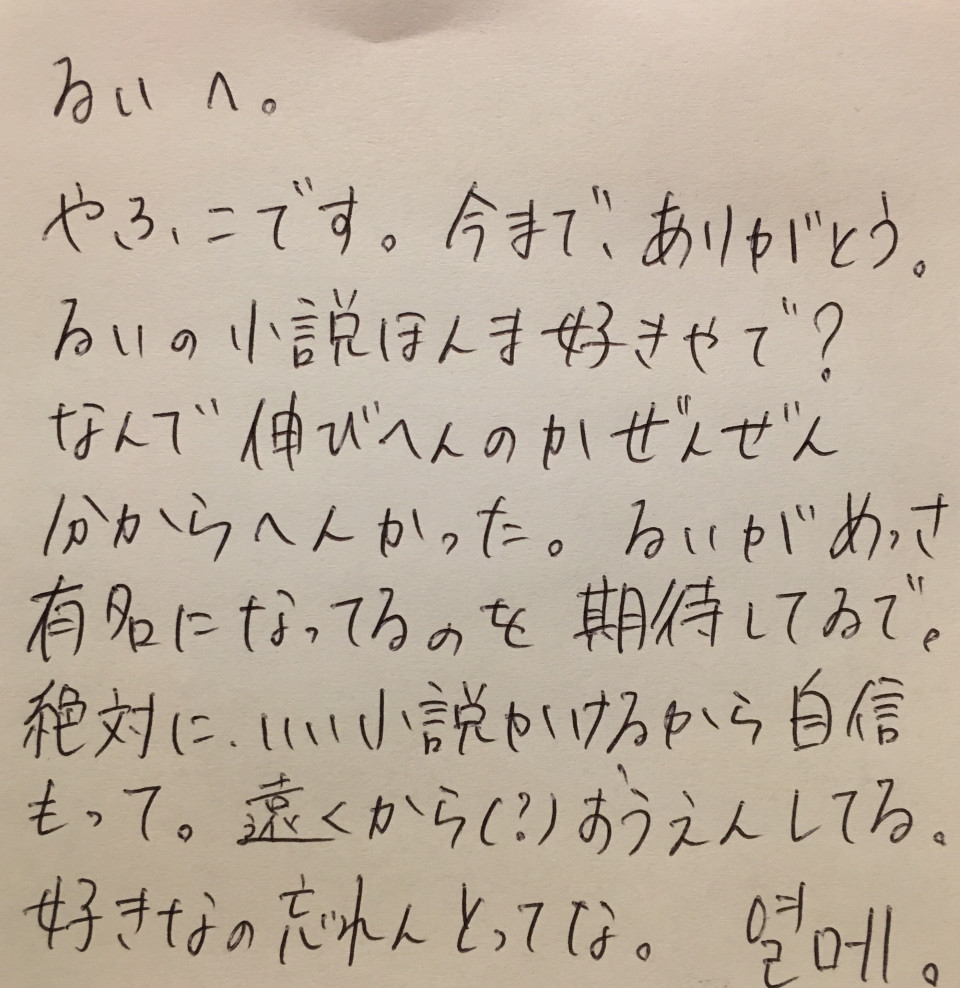 るいへ。
やふ、こです。今まで、ありがとう。
るいの小説ほんま好きやで?
なんで伸びへんのかぜんぜん
分からへんかった。るいがめっさ
有名になってるのを期待してるで。
絶対に、いい小説かけるから自信
もって。遠くから(?)おうえんしてる。
好きなの忘れんとってな。 열메。